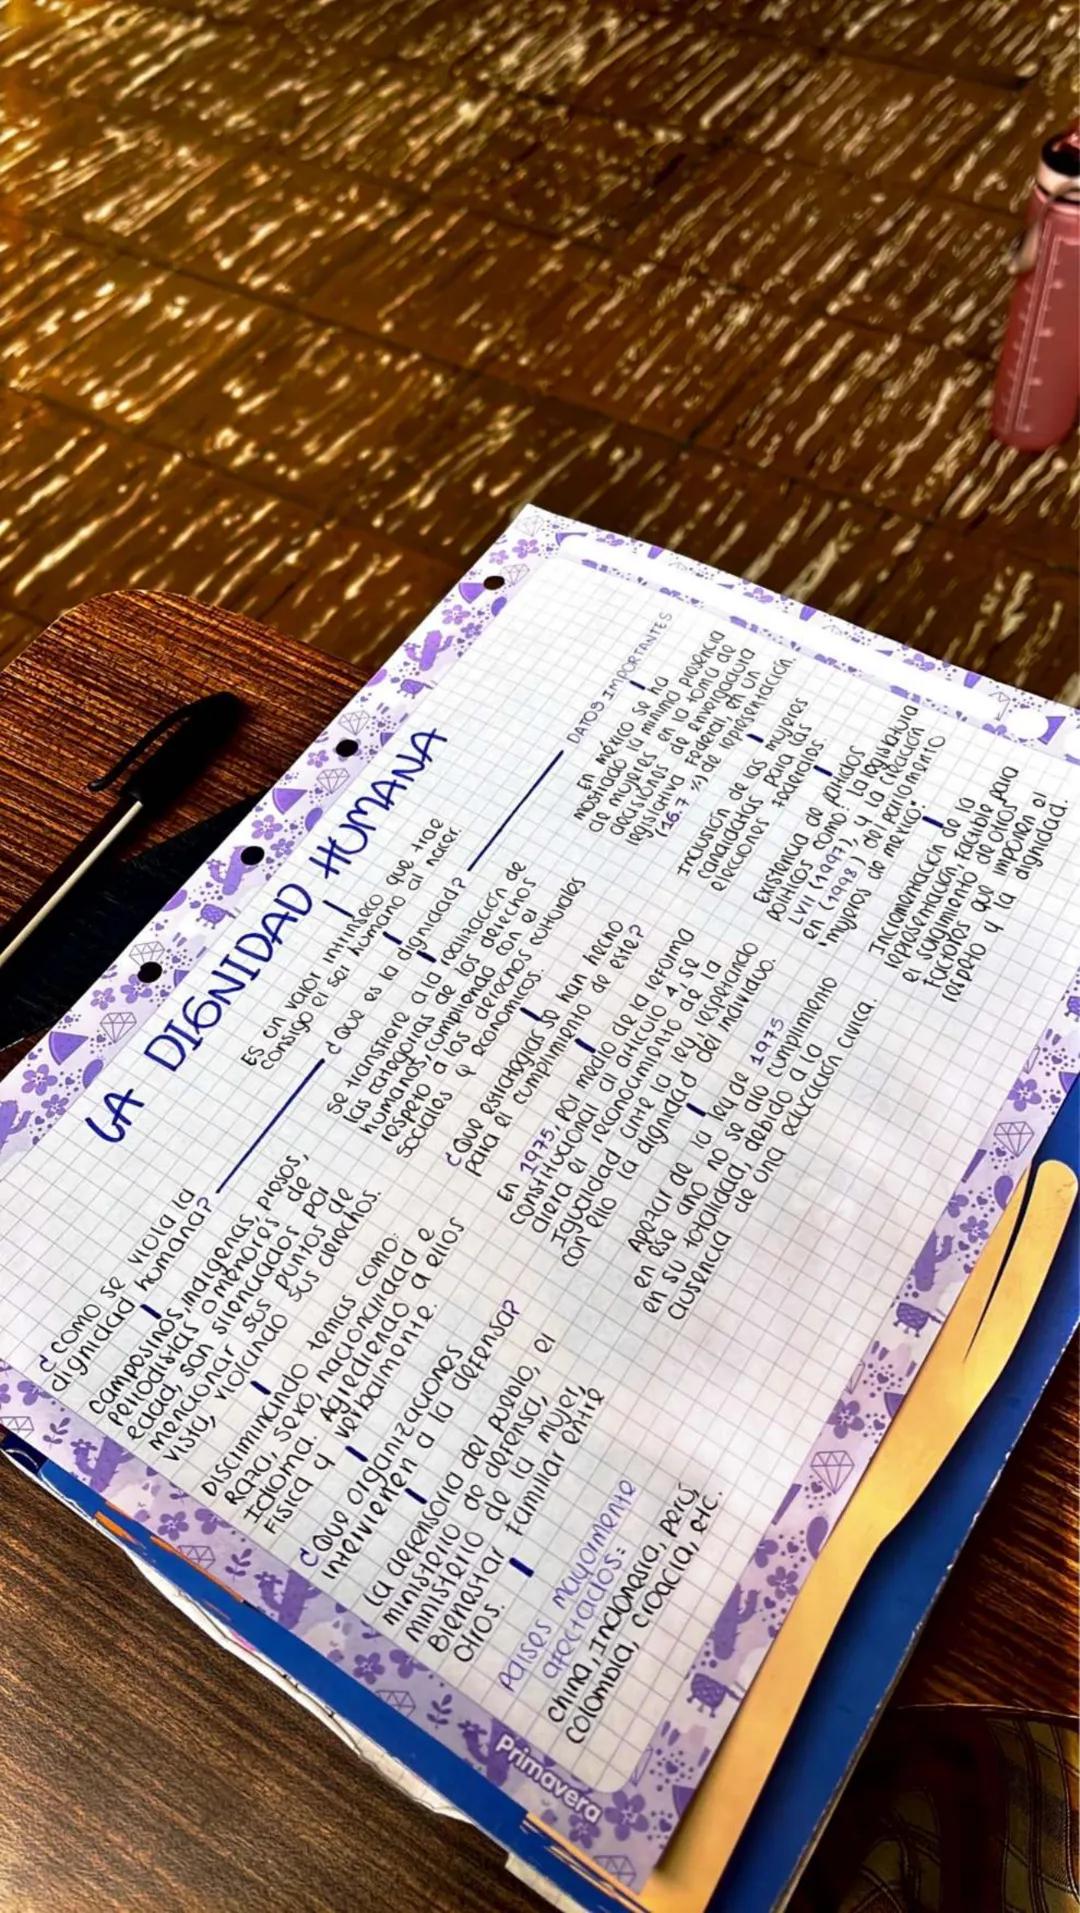 LA DIGNIDAD HUMANA
ES un valor intrínseco que trae
consigo el ser humano al nacer.
¿Que es la dignidad?
se transfiere a la realización de
las categorías de los derechos
humanos, cumpliendo con el
respeto a los derechos culturales
sociales y economicos.
¿Que estrategias se han hecho
para el cumplimiento de este?
En 1975, por medio de la reforma
constitucional al artículo 4, se
diera el reconocimiento de la
Igualdad ante la ley respetando
con ello la dignidad del individuo.
Apezar de la ley de 1975
en ese año no se dio cumplimiento
en su totalidad, debido a la
ausencia de una educación civica.
¿Como se viola la
dignidad humana?
Campesinos, indigenas, presos,
periodistas o menores de
edad, son silenciados por
mencionar sus puntos de
vista, violando sus derechos.
Discriminando temas como:
Raza, sexo, nacionalidad e
Idioma. Agrediendo a ellos
física y verbalmente.
¿Que organizaciones
intervienen a la defensa?
La defensoria del pueblo, el
ministerio de defensa,
ministerio de la mujer,
Bienestar familiar entre
otros.
países mayormente
afectados:
China, Indonesia, perú,
Colombia, croacia, etc.
DATOS IMPORTANTES
En méxico se ha
mostrado la minima presencia
de mujeres en la toma de
decisiones de envergadura
legislativa Federal, en un
(16.7 %) de representación.
Inclusión de las mujeres
candidatas para las
elecciones federales.
Existencia de partidos
políticos como: la legislatura
LVII (1997), y la creación
en (1998) del parlamento
"mujeres de méxico".
Incrementación de la
representación factible para
el surgimiento de otros
factores que imponen el
respeto y la dignidad.
Primavera